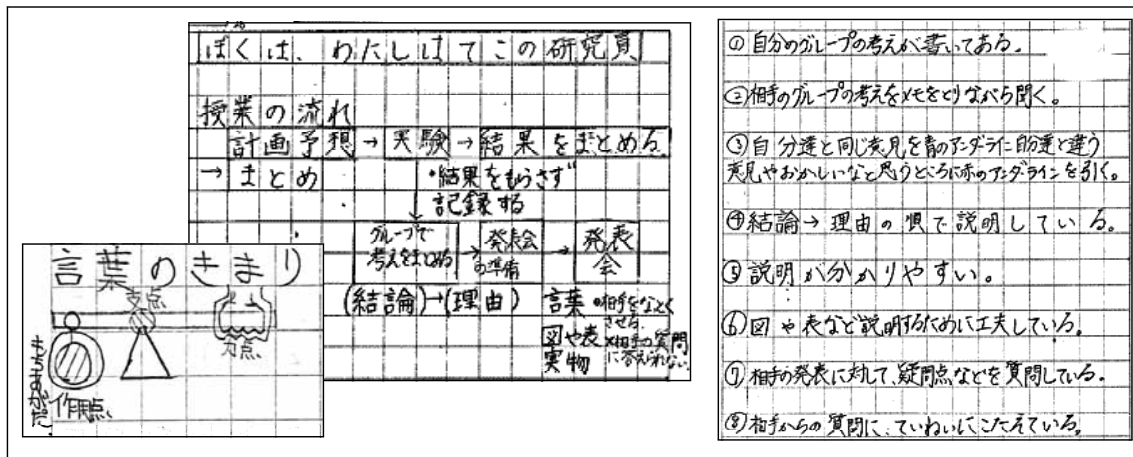 ぼくは、わたしはてこの研究員
授業の流れ
計画予想→実験→結果をまとめる
→まとめ
・結果をもらさず
記録する
グループで
考えをまとめる
→発表会
の準備
→発表
会
(結論)→(理由)
言葉
図や表
実物
・相手をなっとく
させる
×相手の質問
に答えられない
言葉のきまり
支点
力点
作用点
①自分のグループの考えが書いてある。
②相手のグループの考えをメモをとりながら聞く。
③自分達と同じ意見を青のアンダーライン自分達と違う
意見やおかしいなと思うところに赤のアンダーラインを引く。
④結論→理由の順で説明している。
⑤説明が分かりやすい。
⑥図や表など説明するために工夫している。
⑦相手の発表に対して、疑問点などを質問している。
⑧相手からの質問に、ていねいにこたえている。